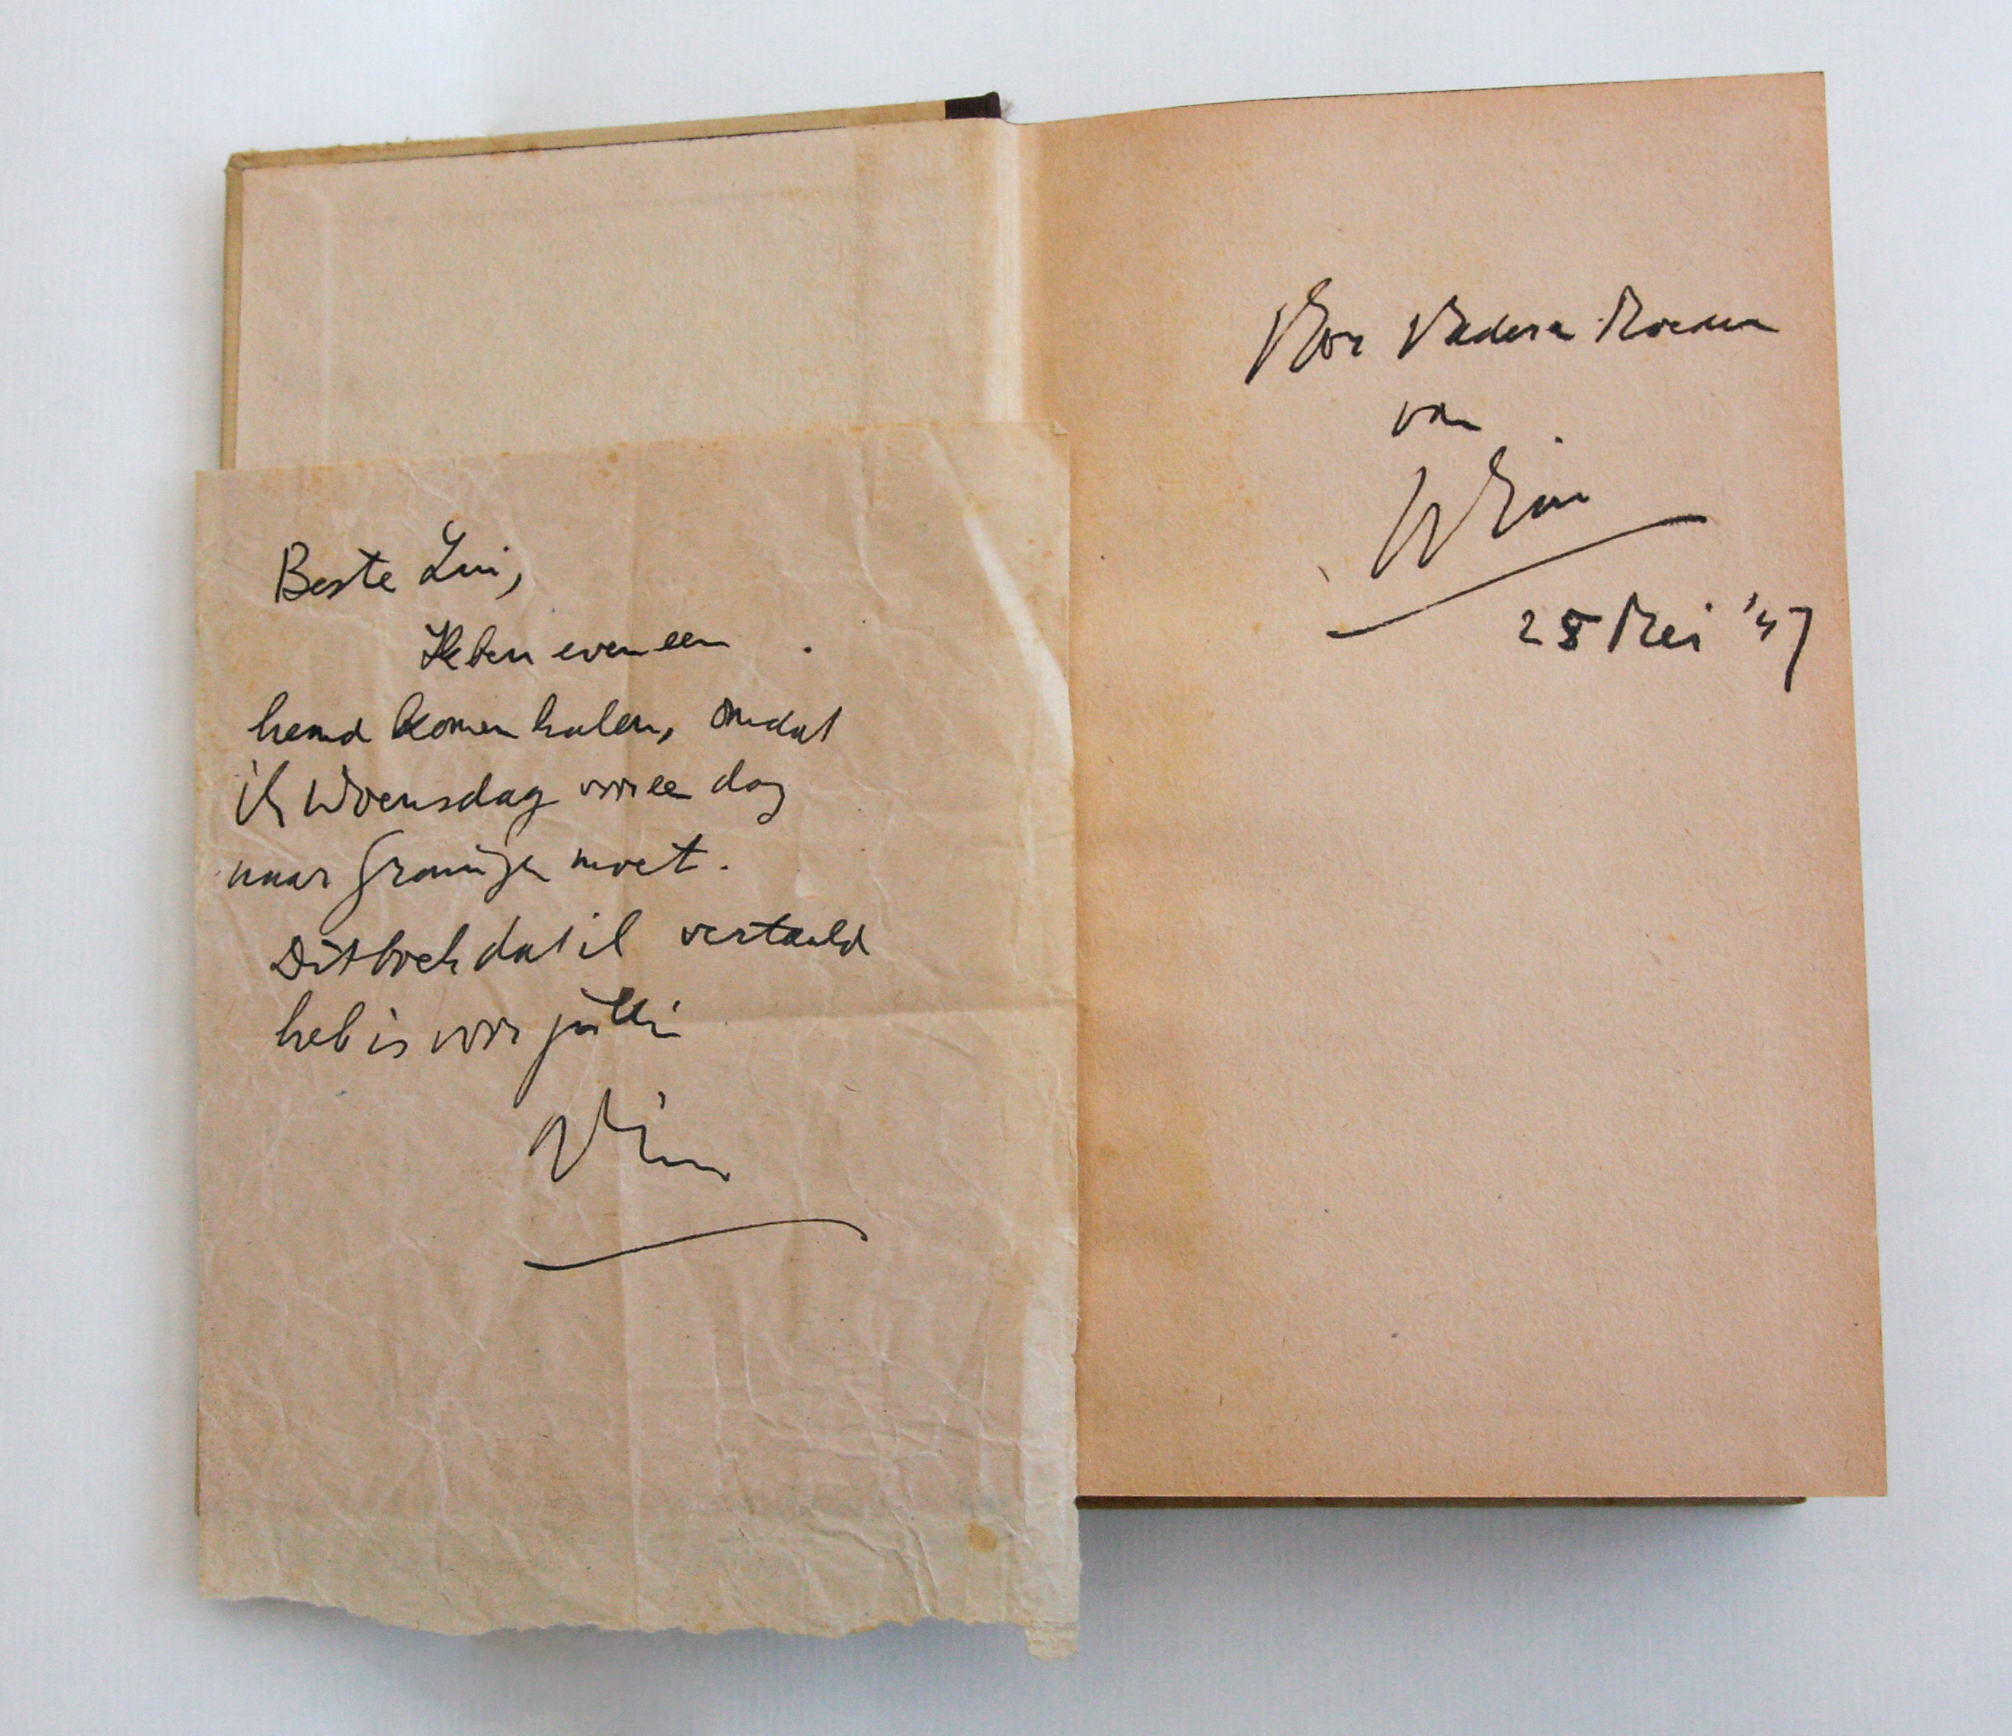 Beste Lui,
Heb even een
hemd komen halen, omdat
ik Woensdag voor een dag
naar Groningen moet.
Dit boek dat ik vertaald
heb is voor jullie
Wim
Voor Vader en Moeder
van
Wim
28 Mei '47